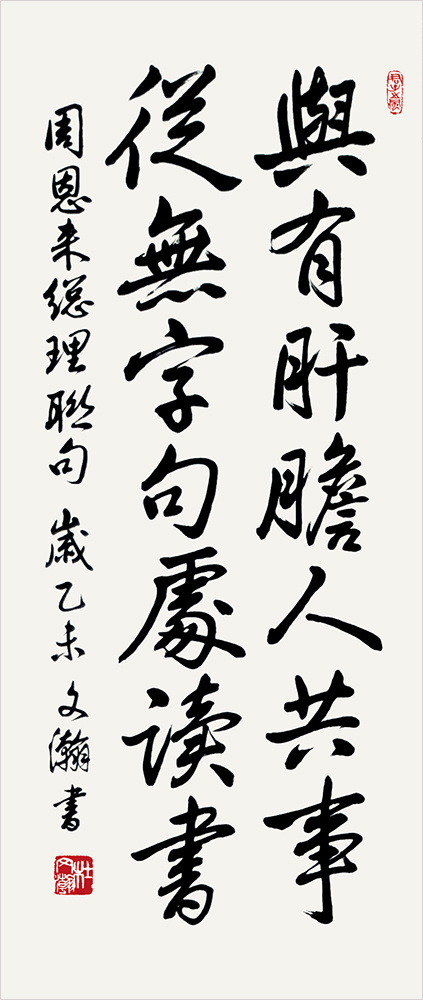 與有肝膽人共事
從無字句處读書
周恩来總理联句 歲乙未 文瀚書
杜文瀚